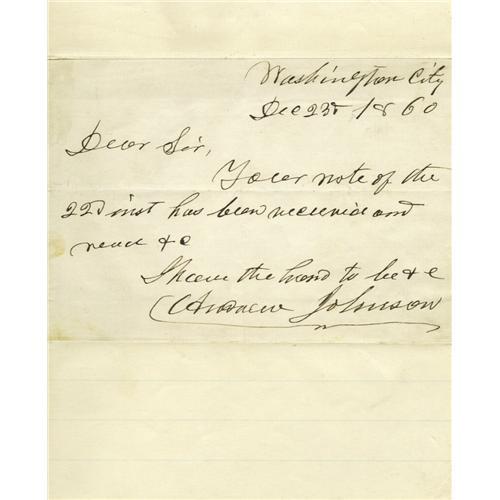 Washington City
Dec 23d 1860
Dear Sir,
Your note of the
22d inst has been received and
read &c
I have the honor to be &c
Andrew Johnson